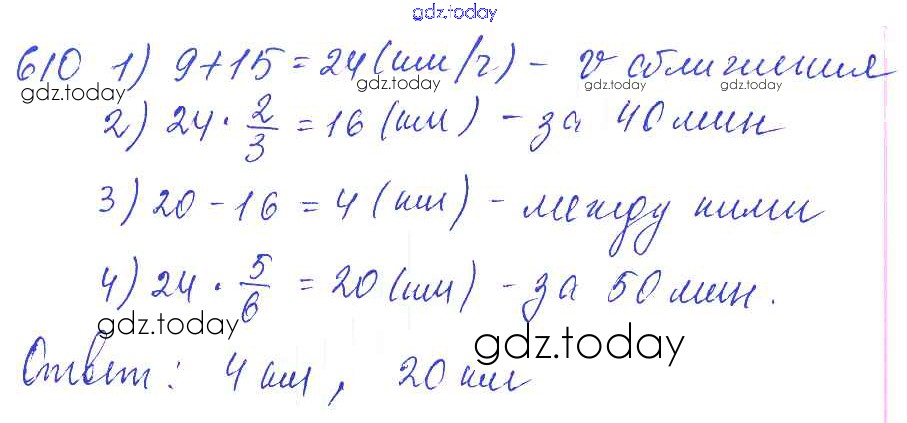 gdz.today
610 1) 9+15=24(км/ч) - v сближения
gdz.today gdz.today gdz.today gdz.today
2) 24·2/3=16(км) - за 40 мин
3) 20-16=4(км) - между ними
4) 24·5/6=20(км) - за 50 мин.
gdz.today gdz.today
Ответ: 4 км, 20 км